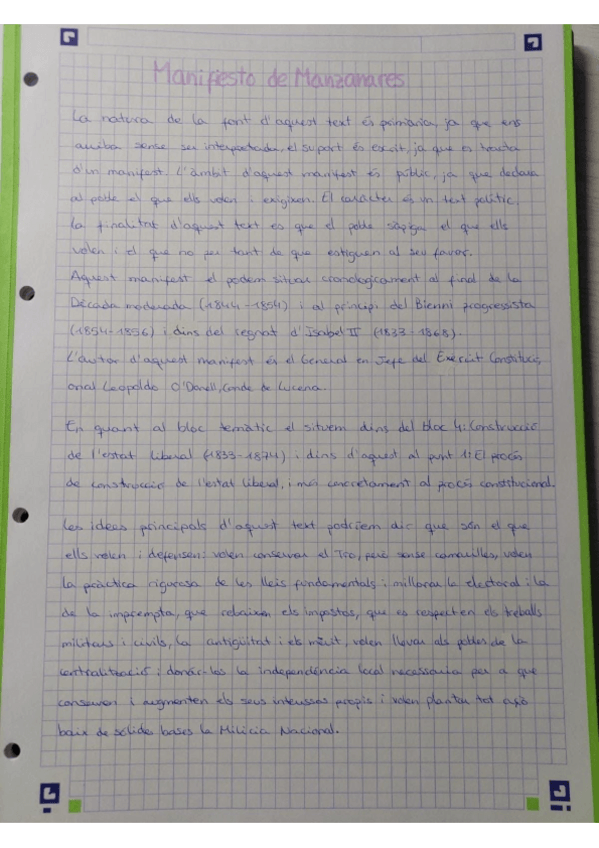 Manifiesto de Manzanares
La natura de la font d'aquest text és primària, ja que ens
arriba sense ser interpretada, el suport és escrit, ja que es tracta
d'un manifest. L'àmbit d'aquest manifest és públic, ja que declara
al poble el que ells volen i exigixen. El caràcter és un text polític.
La finalitat d'aquest text es que el poble sàpiga el que ells
volen i el que no per tant de que estiguen al seu favor.
Aquest manifest el podem situar cronologicament al final de la
Dècada moderada (1844-1854) i al principi del Bienni progressista
(1854-1856) i dins del regnat d'Isabel II (1833-1868).
L'autor d'aquest manifest és el General en Jefe del Exèrcit Constituci
onal Leopoldo O'Donell, Conde de Lucena.
En quant al bloc temàtic el situem dins del bloc 4: Construcció
de l'estat liberal (1833-1874) i dins d'aquest al punt 1: El procés
de construcció de l'estat liberal, i més concretament al procés constitucional.
Les idees principals d'aquest text podríem dir que són el que
ells volen i defensen: volen conservar el Tro, però sense camarilles, volen
la pràctica rigurosa de les lleis fundamentals i millorar la electoral i la
de la impremta, que rebaixen els impostos, que es respecten els treballs
militars i civils, la antigüitat i els mèrit, volen llevar als pobles de la
centralització i donar-los la independència local necessària per a que
conserven i augmenten els seus interessos propis i volen plantar tot açò
baix de sòlides bases la Milicia Nacional.